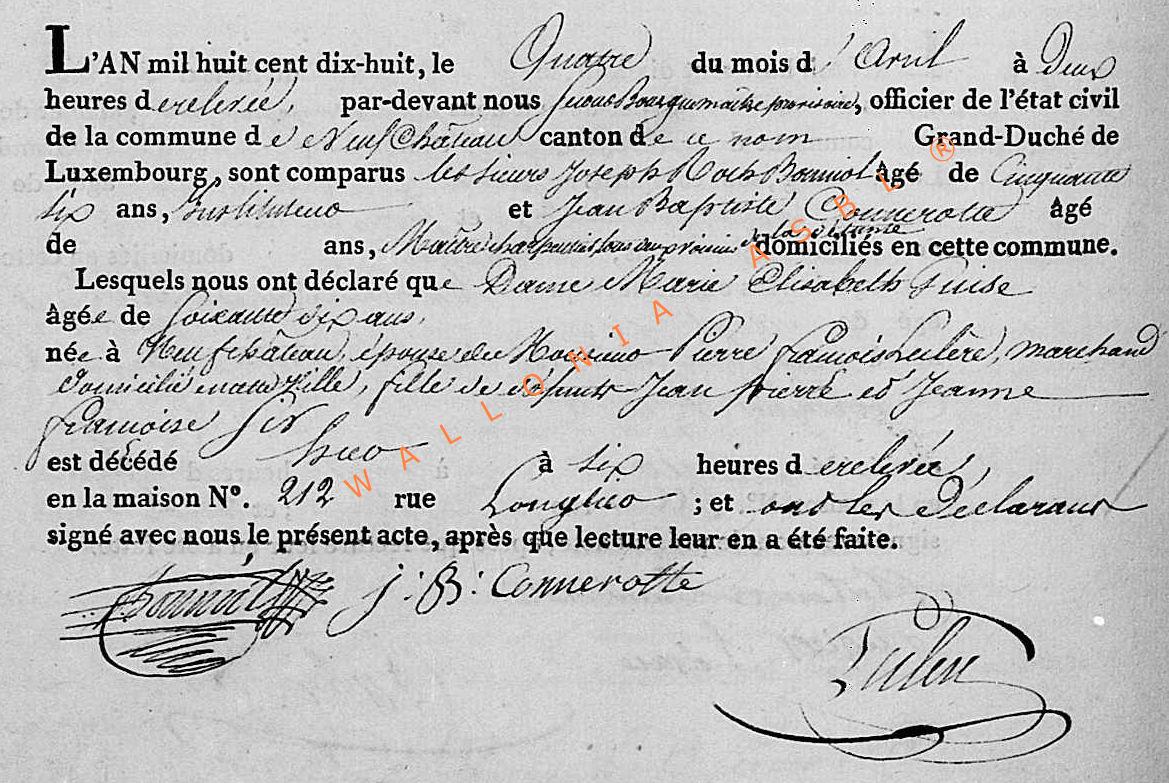 L'AN mil huit cent dix-huit, le Quatre du mois d'Avril à Deux
heures de relevée, par-devant nous Bourguemaitre provisoire, officier de l'état civil
de la commune de Neufchâteau canton de ce nom Grand-Duché de
Luxembourg, sont comparus les sieurs Joseph Roch Bonniol âgé de Cinquante
six ans, Instituteur et Jean Baptiste Connerotte âgé
de ans, Maître charpentier tous deux domiciliés en cette commune.
Lesquels nous ont déclaré que Dame Marie Elisabeth
âgée de Soixante dix ans,
née à Neufchâteau, épouse du Monsieur Pierre françois Leclère, marchand
domicilié en cette Ville, fille de défunts Jean pierre et Jeanne
françoise
est décédé hier à six heures de relevée,
en la maison Nº. 212 rue Longlier ; et ont les Déclarans
signé avec nous le présent acte, après que lecture leur en a été faite.
J: B: Connerotte
WALLONIA ASBL ®